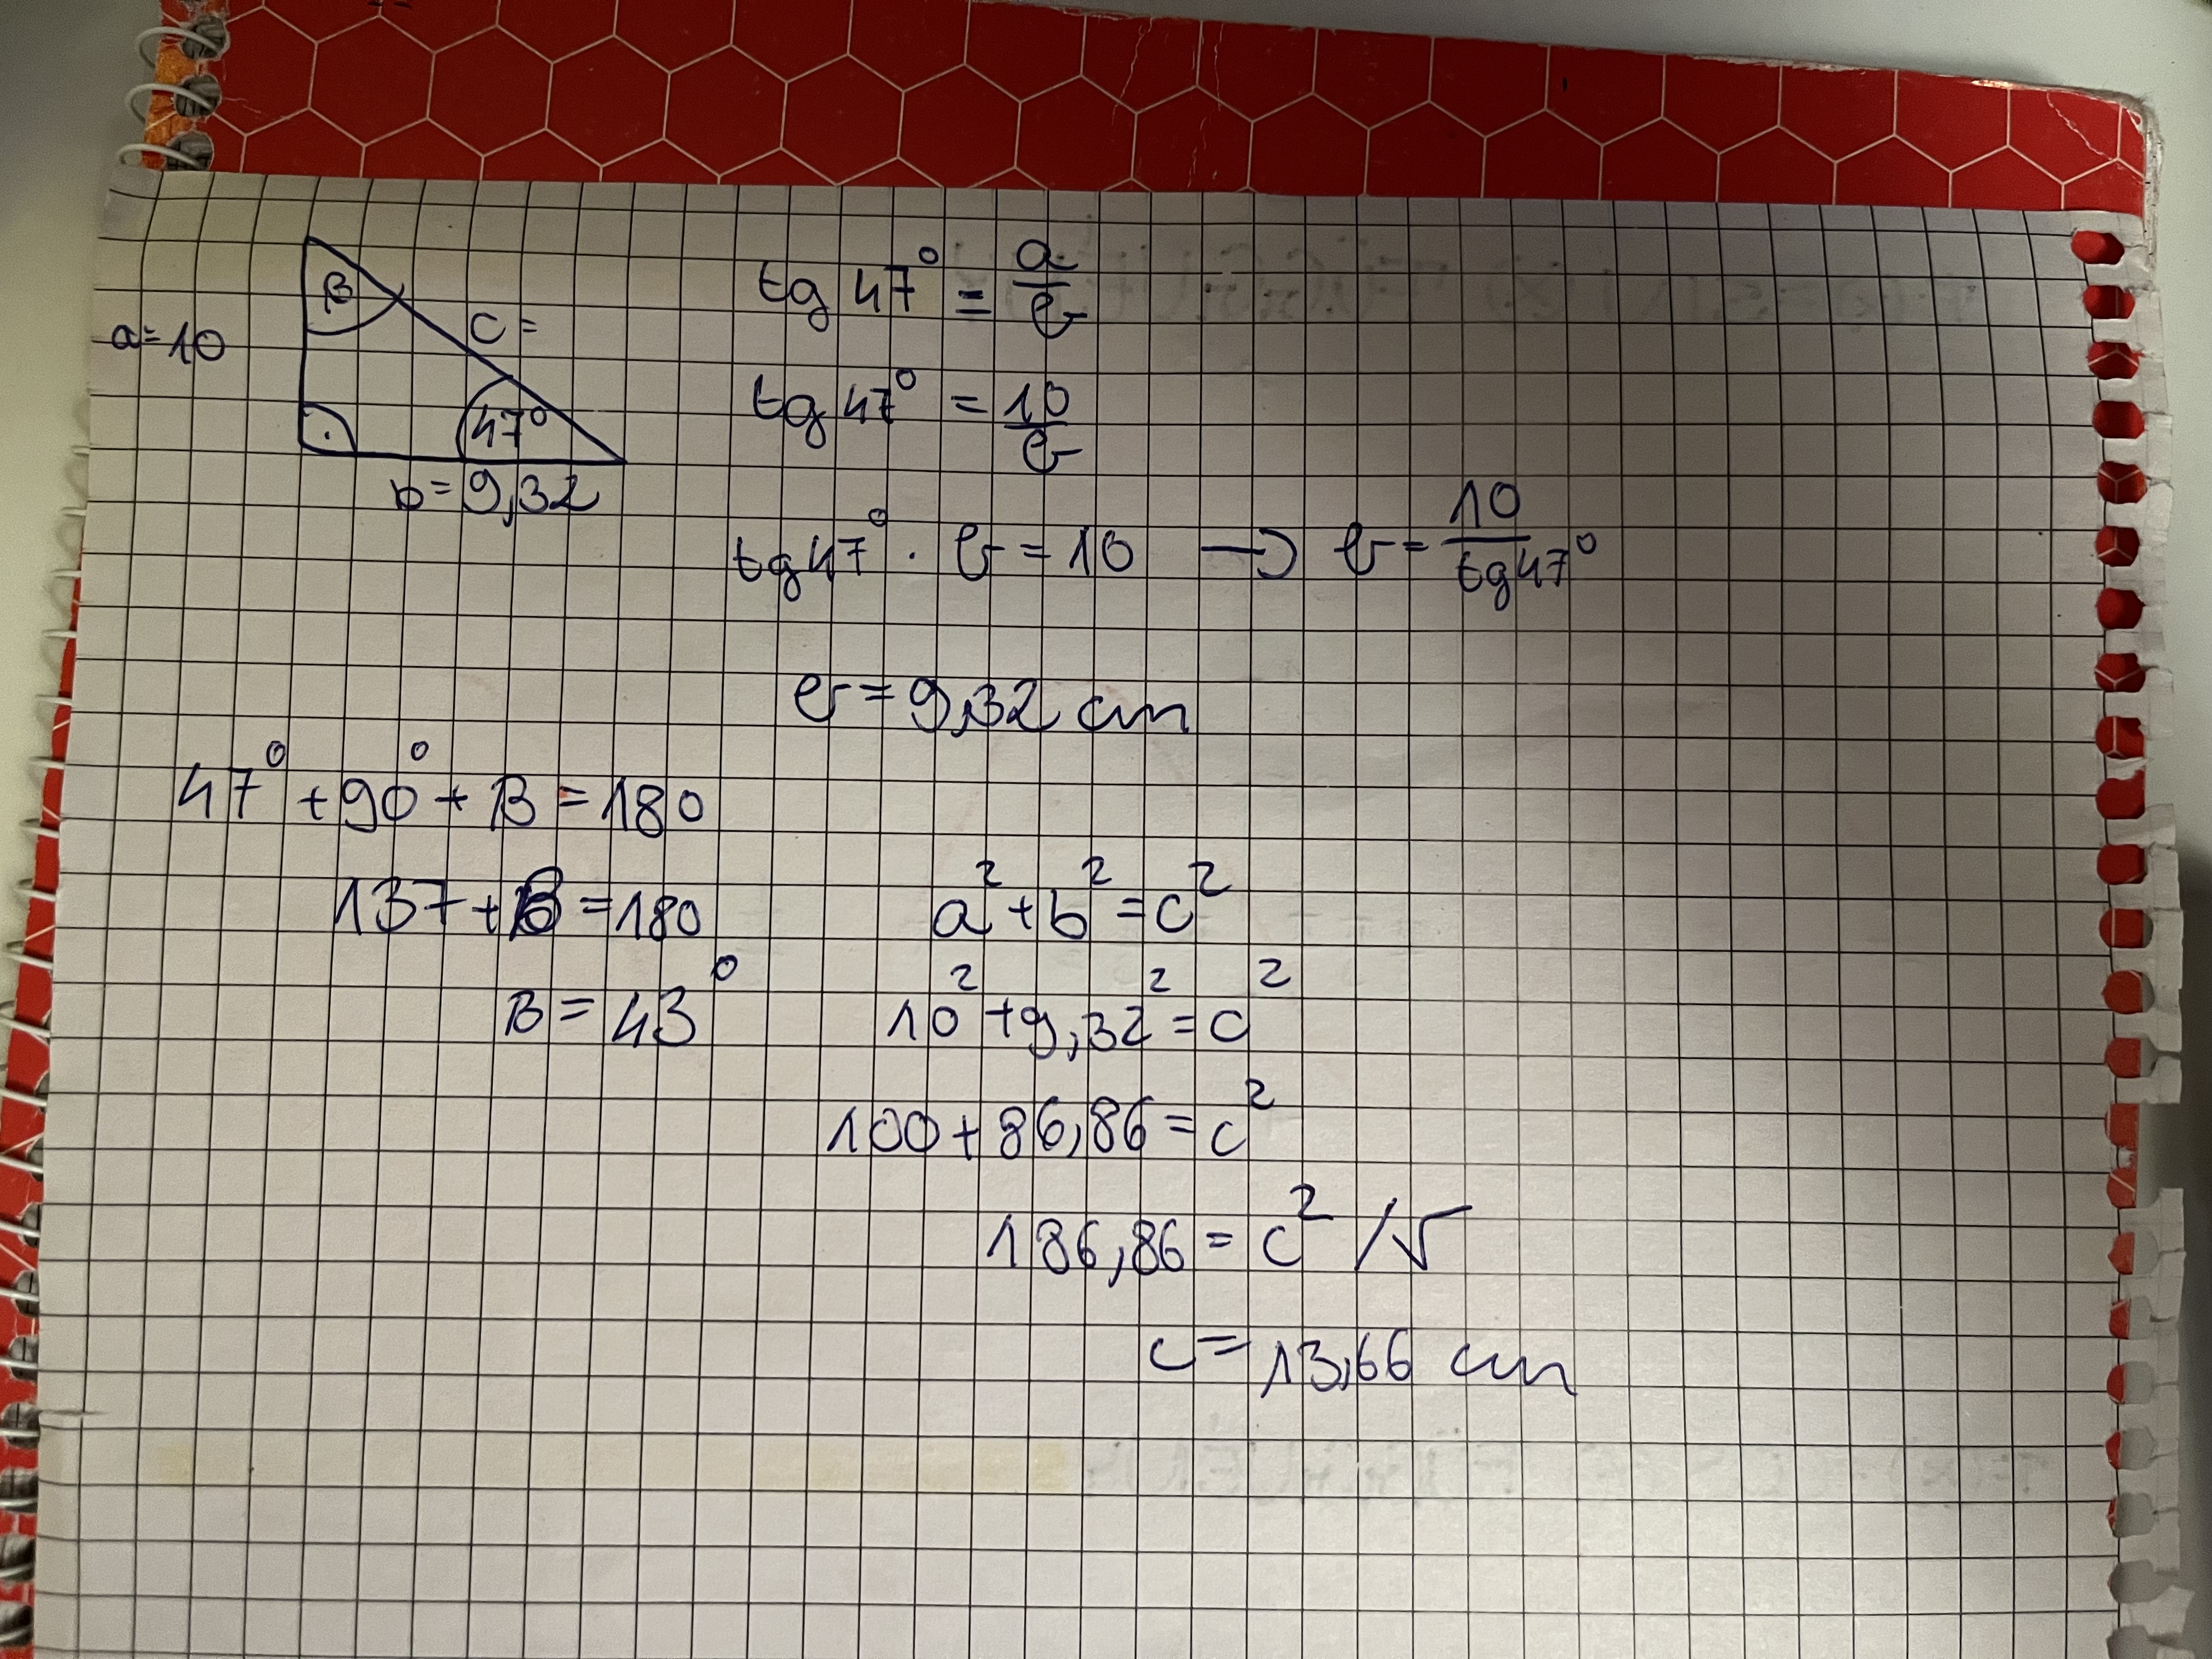 β
a=10
c=
47°
b=9,32
tg 47° = a/b
tg 47° = 10/b
tg 47° · b = 10 → b = 10/tg 47°
b = 9,32 cm
47° + 90° + B = 180
137 + B = 180
B = 43°
a² + b² = c²
10² + 9,32² = c²
100 + 86,86 = c²
186,86 = c² /√
c = 13,66 cm